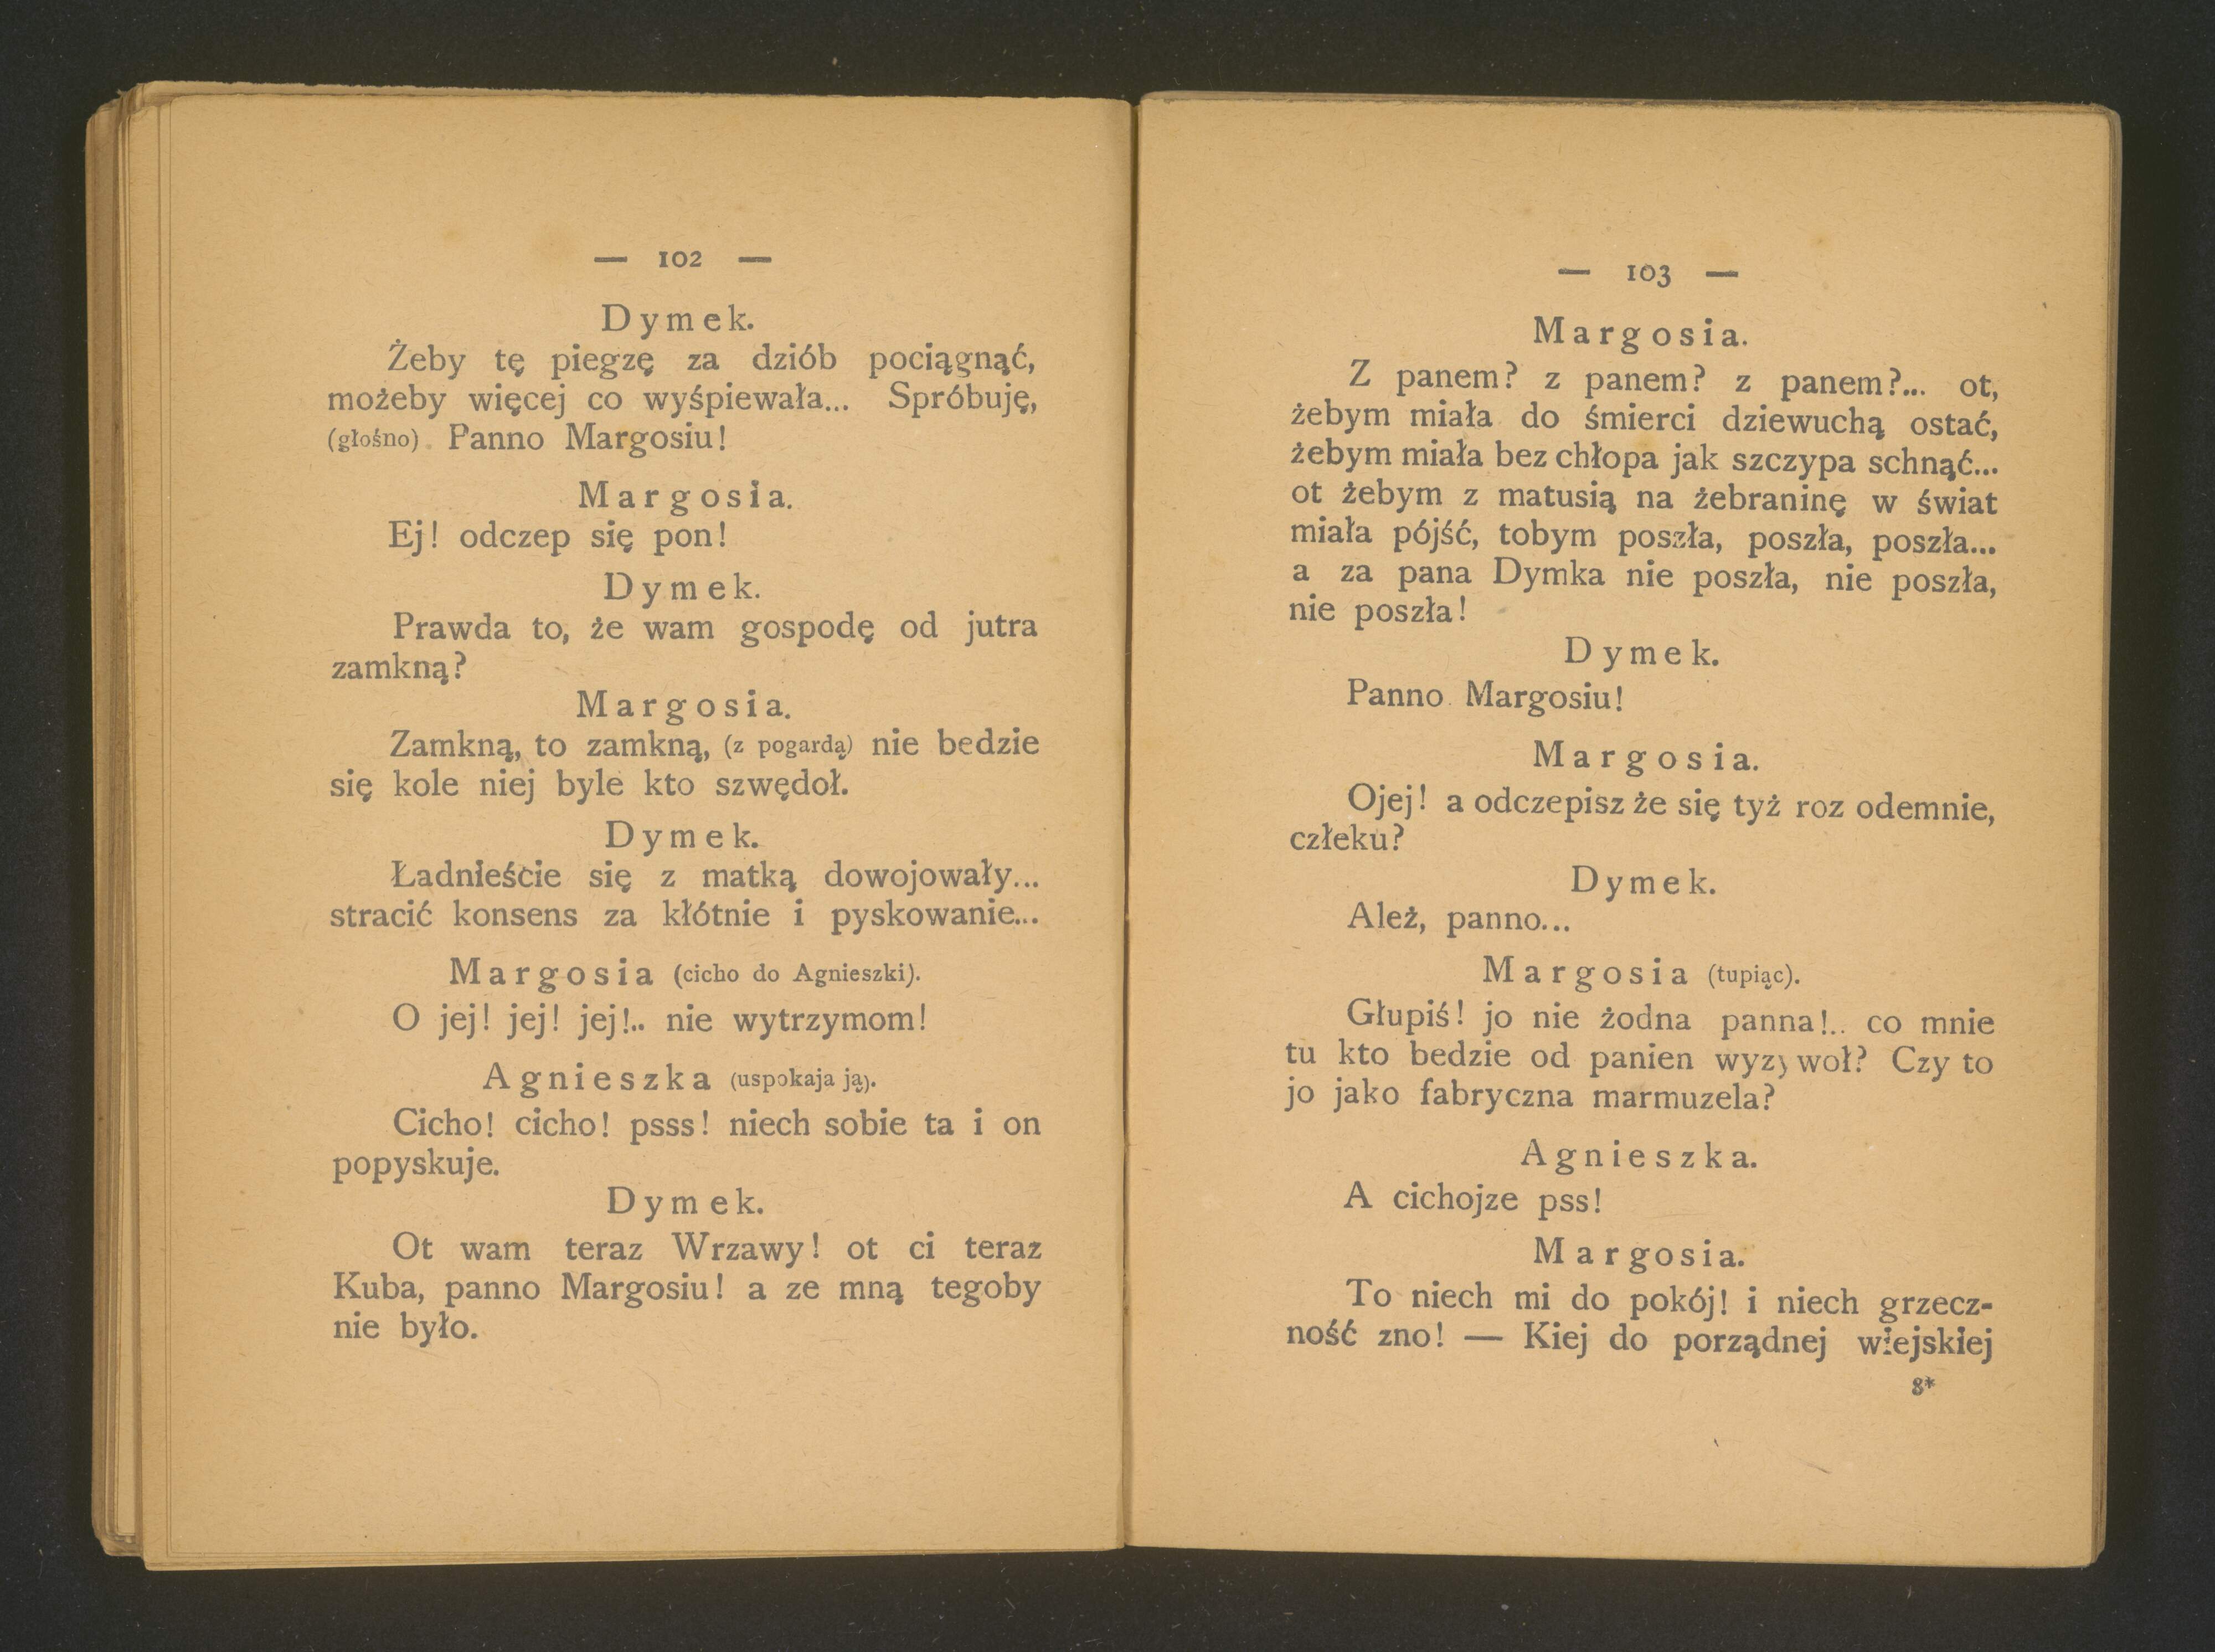 — 102 —
Dymek.
Żeby tę piegzę za dziób pociągnąć,
możeby więcej co wyśpiewała... Spróbuję,
(głośno). Panno Margosiu!
Margosia.
Ej! odczep się pon!
Dymek.
Prawda to, że wam gospodę od jutra
zamkną?
Margosia.
Zamkną, to zamkną, (z pogardą) nie bedzie
się kole niej byle kto szwędoł.
Dymek.
Ładnieście się z matką dowojowały...
stracić konsens za kłótnie i pyskowanie...
Margosia (cicho do Agnieszki).
O jej! jej! jej!.. nie wytrzymom!
Agnieszka (uspokaja ją).
Cicho! cicho! psss! niech sobie ta i on
popyskuje.
Dymek.
Ot wam teraz Wrzawy! ot ci teraz
Kuba, panno Margosiu! a ze mną tegoby
nie było.
— 103 —
Margosia.
Z panem? z panem? z panem?... ot,
żebym miała do śmierci dziewuchą ostać,
żebym miała bez chłopa jak szczypa schnąć...
ot żebym z matusią na żebraninę w świat
miała pójść, tobym poszła, poszła, poszła...
a za pana Dymka nie poszła, nie poszła,
nie poszła!
Dymek.
Panno Margosiu!
Margosia.
Ojej! a odczepisz że się tyż roz odemnie,
człeku?
Dymek.
Ależ, panno...
Margosia (tupiąc).
Głupiś! jo nie żodna panna!.. co mnie
tu kto bedzie od panien wyzywoł? Czy to
jo jako fabryczna marmuzela?
Agnieszka.
A cichojze pss!
Margosia.
To niech mi do pokój! i niech grzecz-
ność zno! — Kiej do porządnej wiejskiej
8*